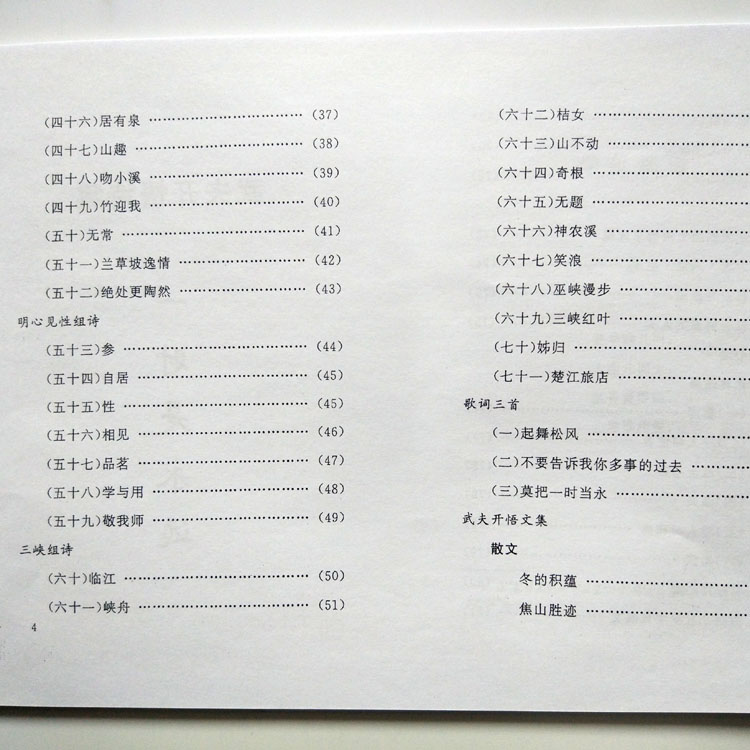 (四十六)居有泉 …………………………… (37)
(四十七)山趣 …………………………… (38)
(四十八)吻小溪 …………………………… (39)
(四十九)竹迎我 …………………………… (40)
(五十)无常 …………………………… (41)
(五十一)兰草坡逸情 …………………………… (42)
(五十二)绝处更陶然 …………………………… (43)
明心见性组诗
(五十三)参 …………………………… (44)
(五十四)自居 …………………………… (45)
(五十五)性 …………………………… (45)
(五十六)相见 …………………………… (46)
(五十七)品茗 …………………………… (47)
(五十八)学与用 …………………………… (48)
(五十九)敬我师 …………………………… (49)
三峡组诗
(六十)临江 …………………………… (50)
(六十一)峡舟 …………………………… (51)
4
(六十二)桔女 ……………………
(六十三)山不动 ……………………
(六十四)奇根 ……………………
(六十五)无题 ……………………
(六十六)神农溪 ……………………
(六十七)笑浪 ……………………
(六十八)巫峡漫步 ……………………
(六十九)三峡红叶 ……………………
(七十)姊归 ……………………
(七十一)楚江旅店 ……………………
歌词三首
(一)起舞松风 ……………………
(二)不要告诉我你多事的过去 …………
(三)莫把一时当永 ……………………
武夫开悟文集
散文
冬的积蕴 ……………………
焦山胜迹 ……………………